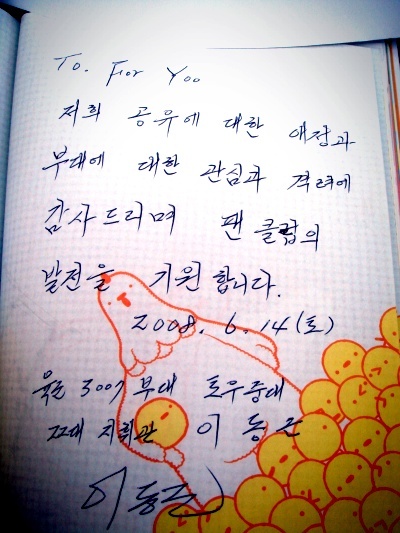 To. For You
저희 공유에 대한 애정과
부대에 대한 관심과 격려에
감사드리며 팬클럽의
발전을 기원합니다.
2008. 6. 14(토)
육군 3007부대 토우중대
꼬대 지휘관 이동근
이동근